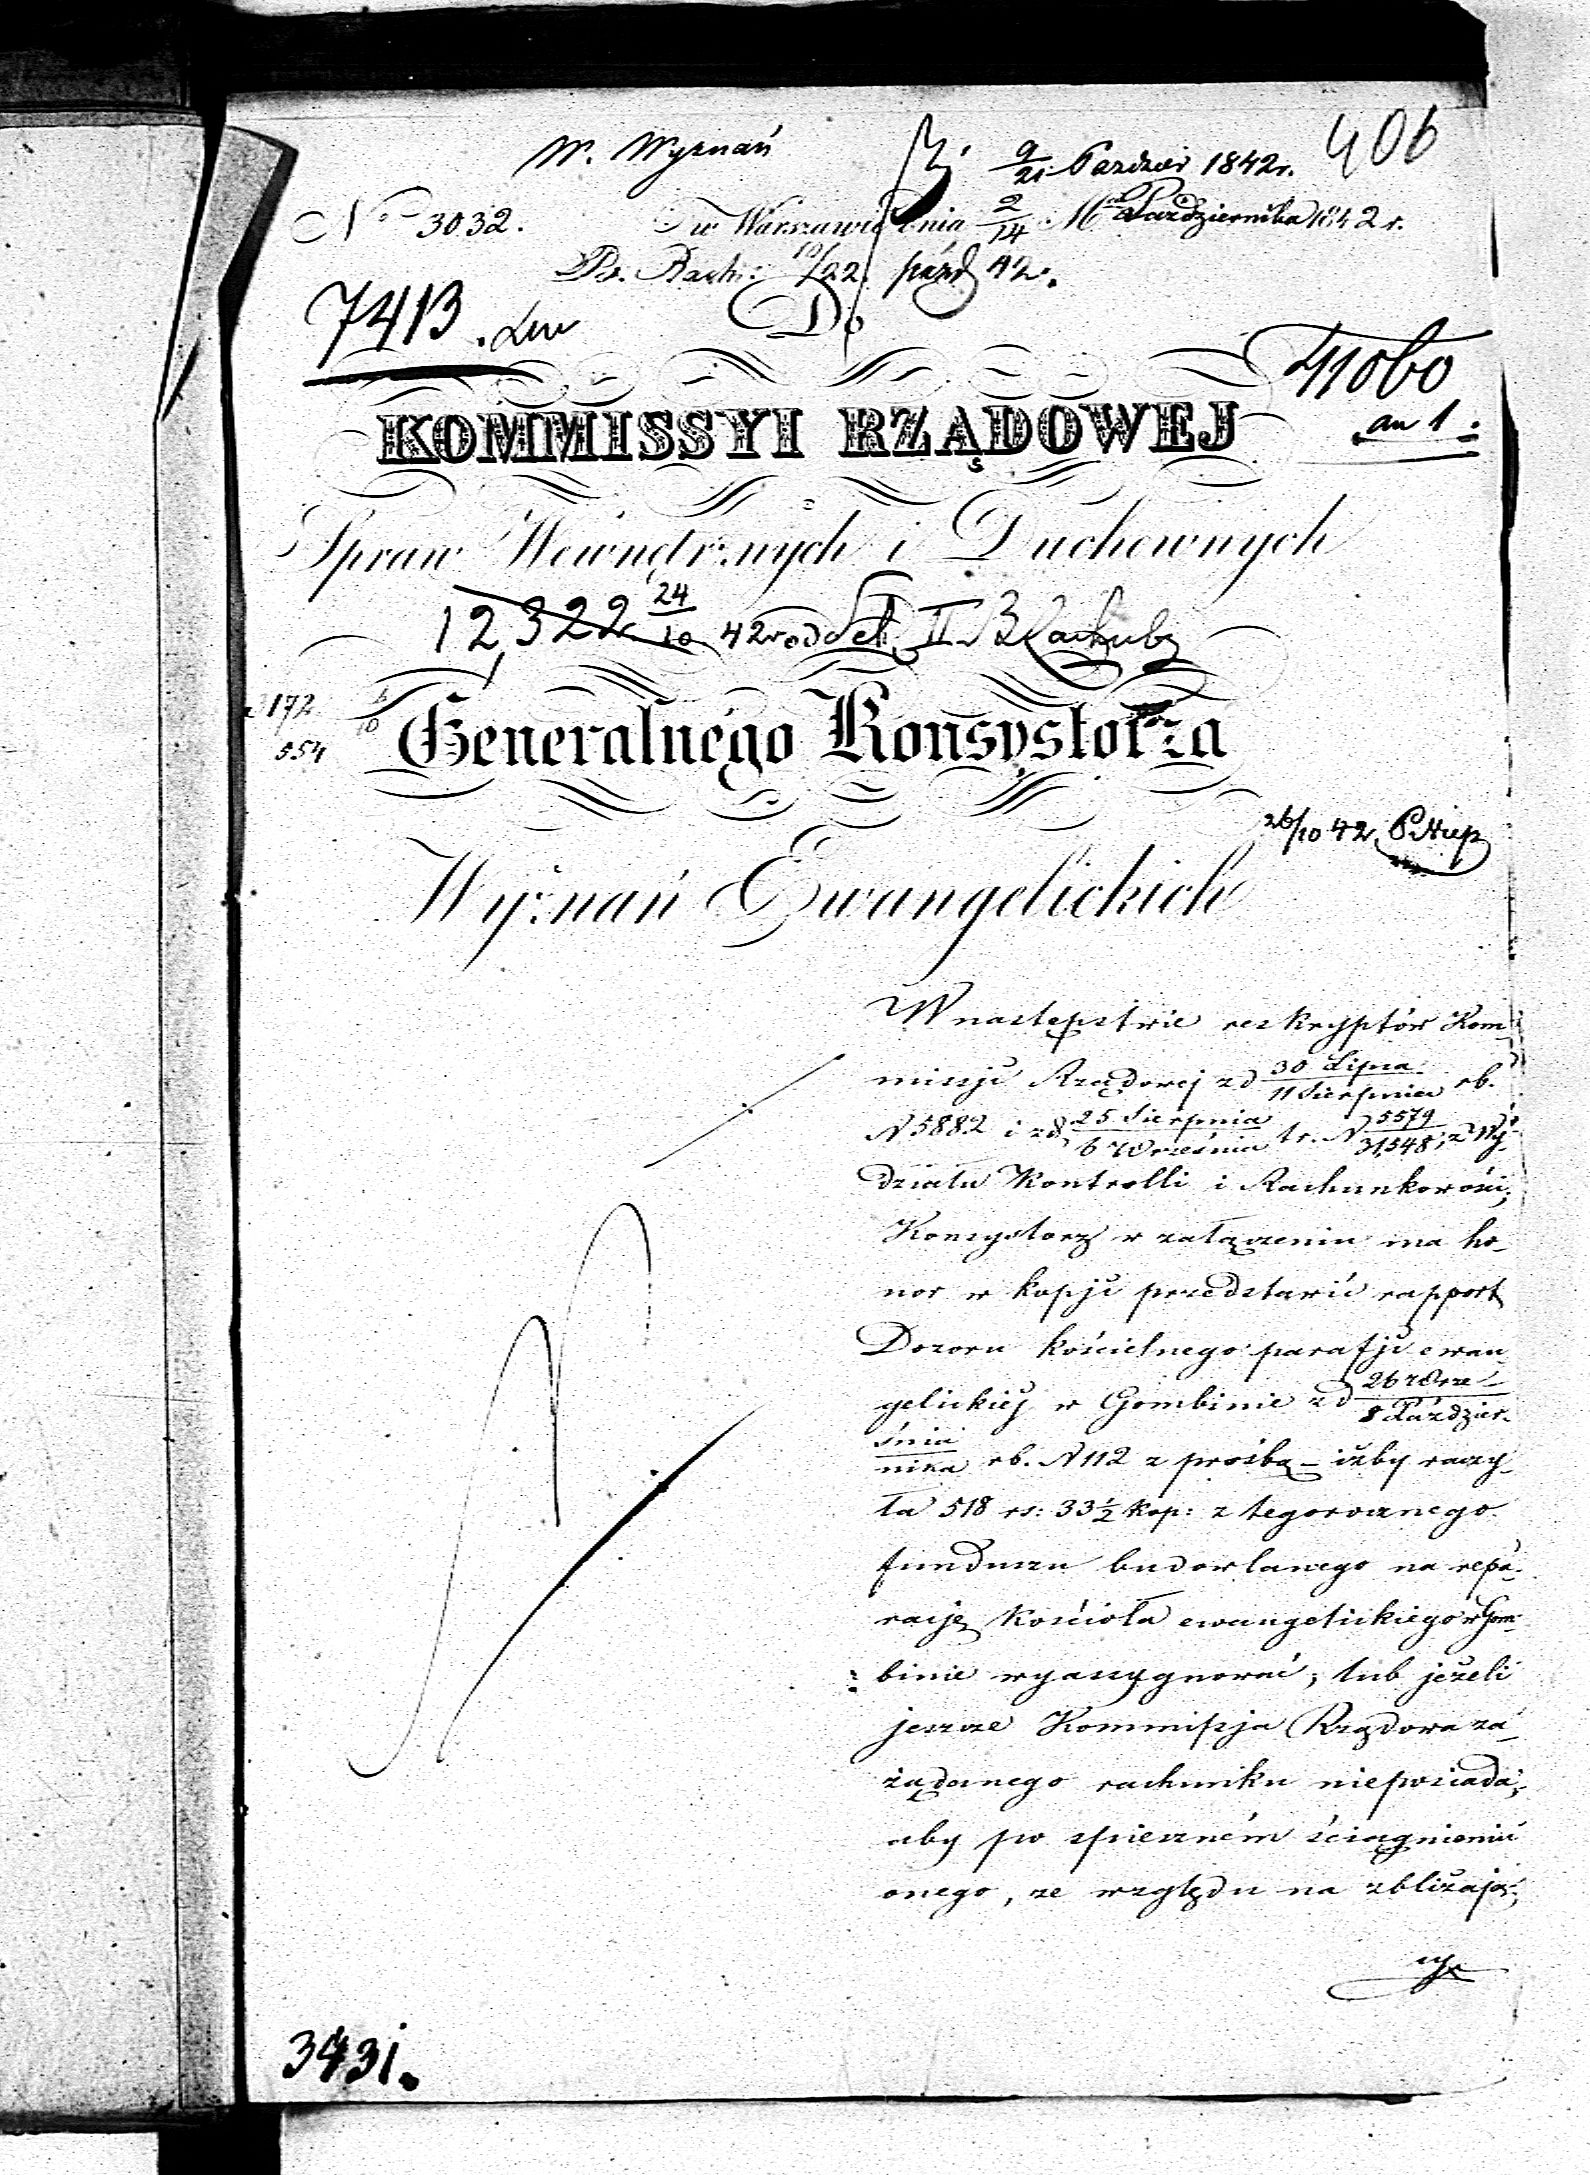 W. Wyznań
9/21 Paździer 1842 r.
406
No 3032.
w Warszawie dnia 2/14 Mca Października 1842 r.
Rach: 10/22 paźd 42.
7413.
Do
41060
an 1.
KOMMISSYI RZĄDOWEJ
Spraw Wewnętrznych i Duchownych
12,322 24/10 42 r od Sek II Rachuby
172
554
Generalnego Konsystorza
26/10 42
Wyznań Ewangelickich
W następstwie reskryptów Kom-
missji Rządowej zd 30 Lipca/11 Sierpnia rb.
N 5882 i zd 25 Sierpnia/6 Września t r. N 5579/31,548; z Wy-
działu Kontrolli i Rachunkowości,
Konsystorz w załączeniu ma ho-
nor w kopji przedstawić rapport
Dozoru kościelnego parafji ewan-
gelickiej w Gombinie zd 26 Wrze-/8 Paździer-
śnia/nika rb. N 112 z prośbą – iżby raczy-
ła 518 rs: 33½ kop: z tegorocznego
funduszu budowlanego na repa-
racją Kościoła ewangelickiego w Gom-
binie wyassygnować, lub jeżeli
jeszcze Kommissja Rządowa za-
żądanego rachunku nieposiada,
aby po spieszném ściągnieniu
onego, ze względu na zbliżają-
cy
3431.